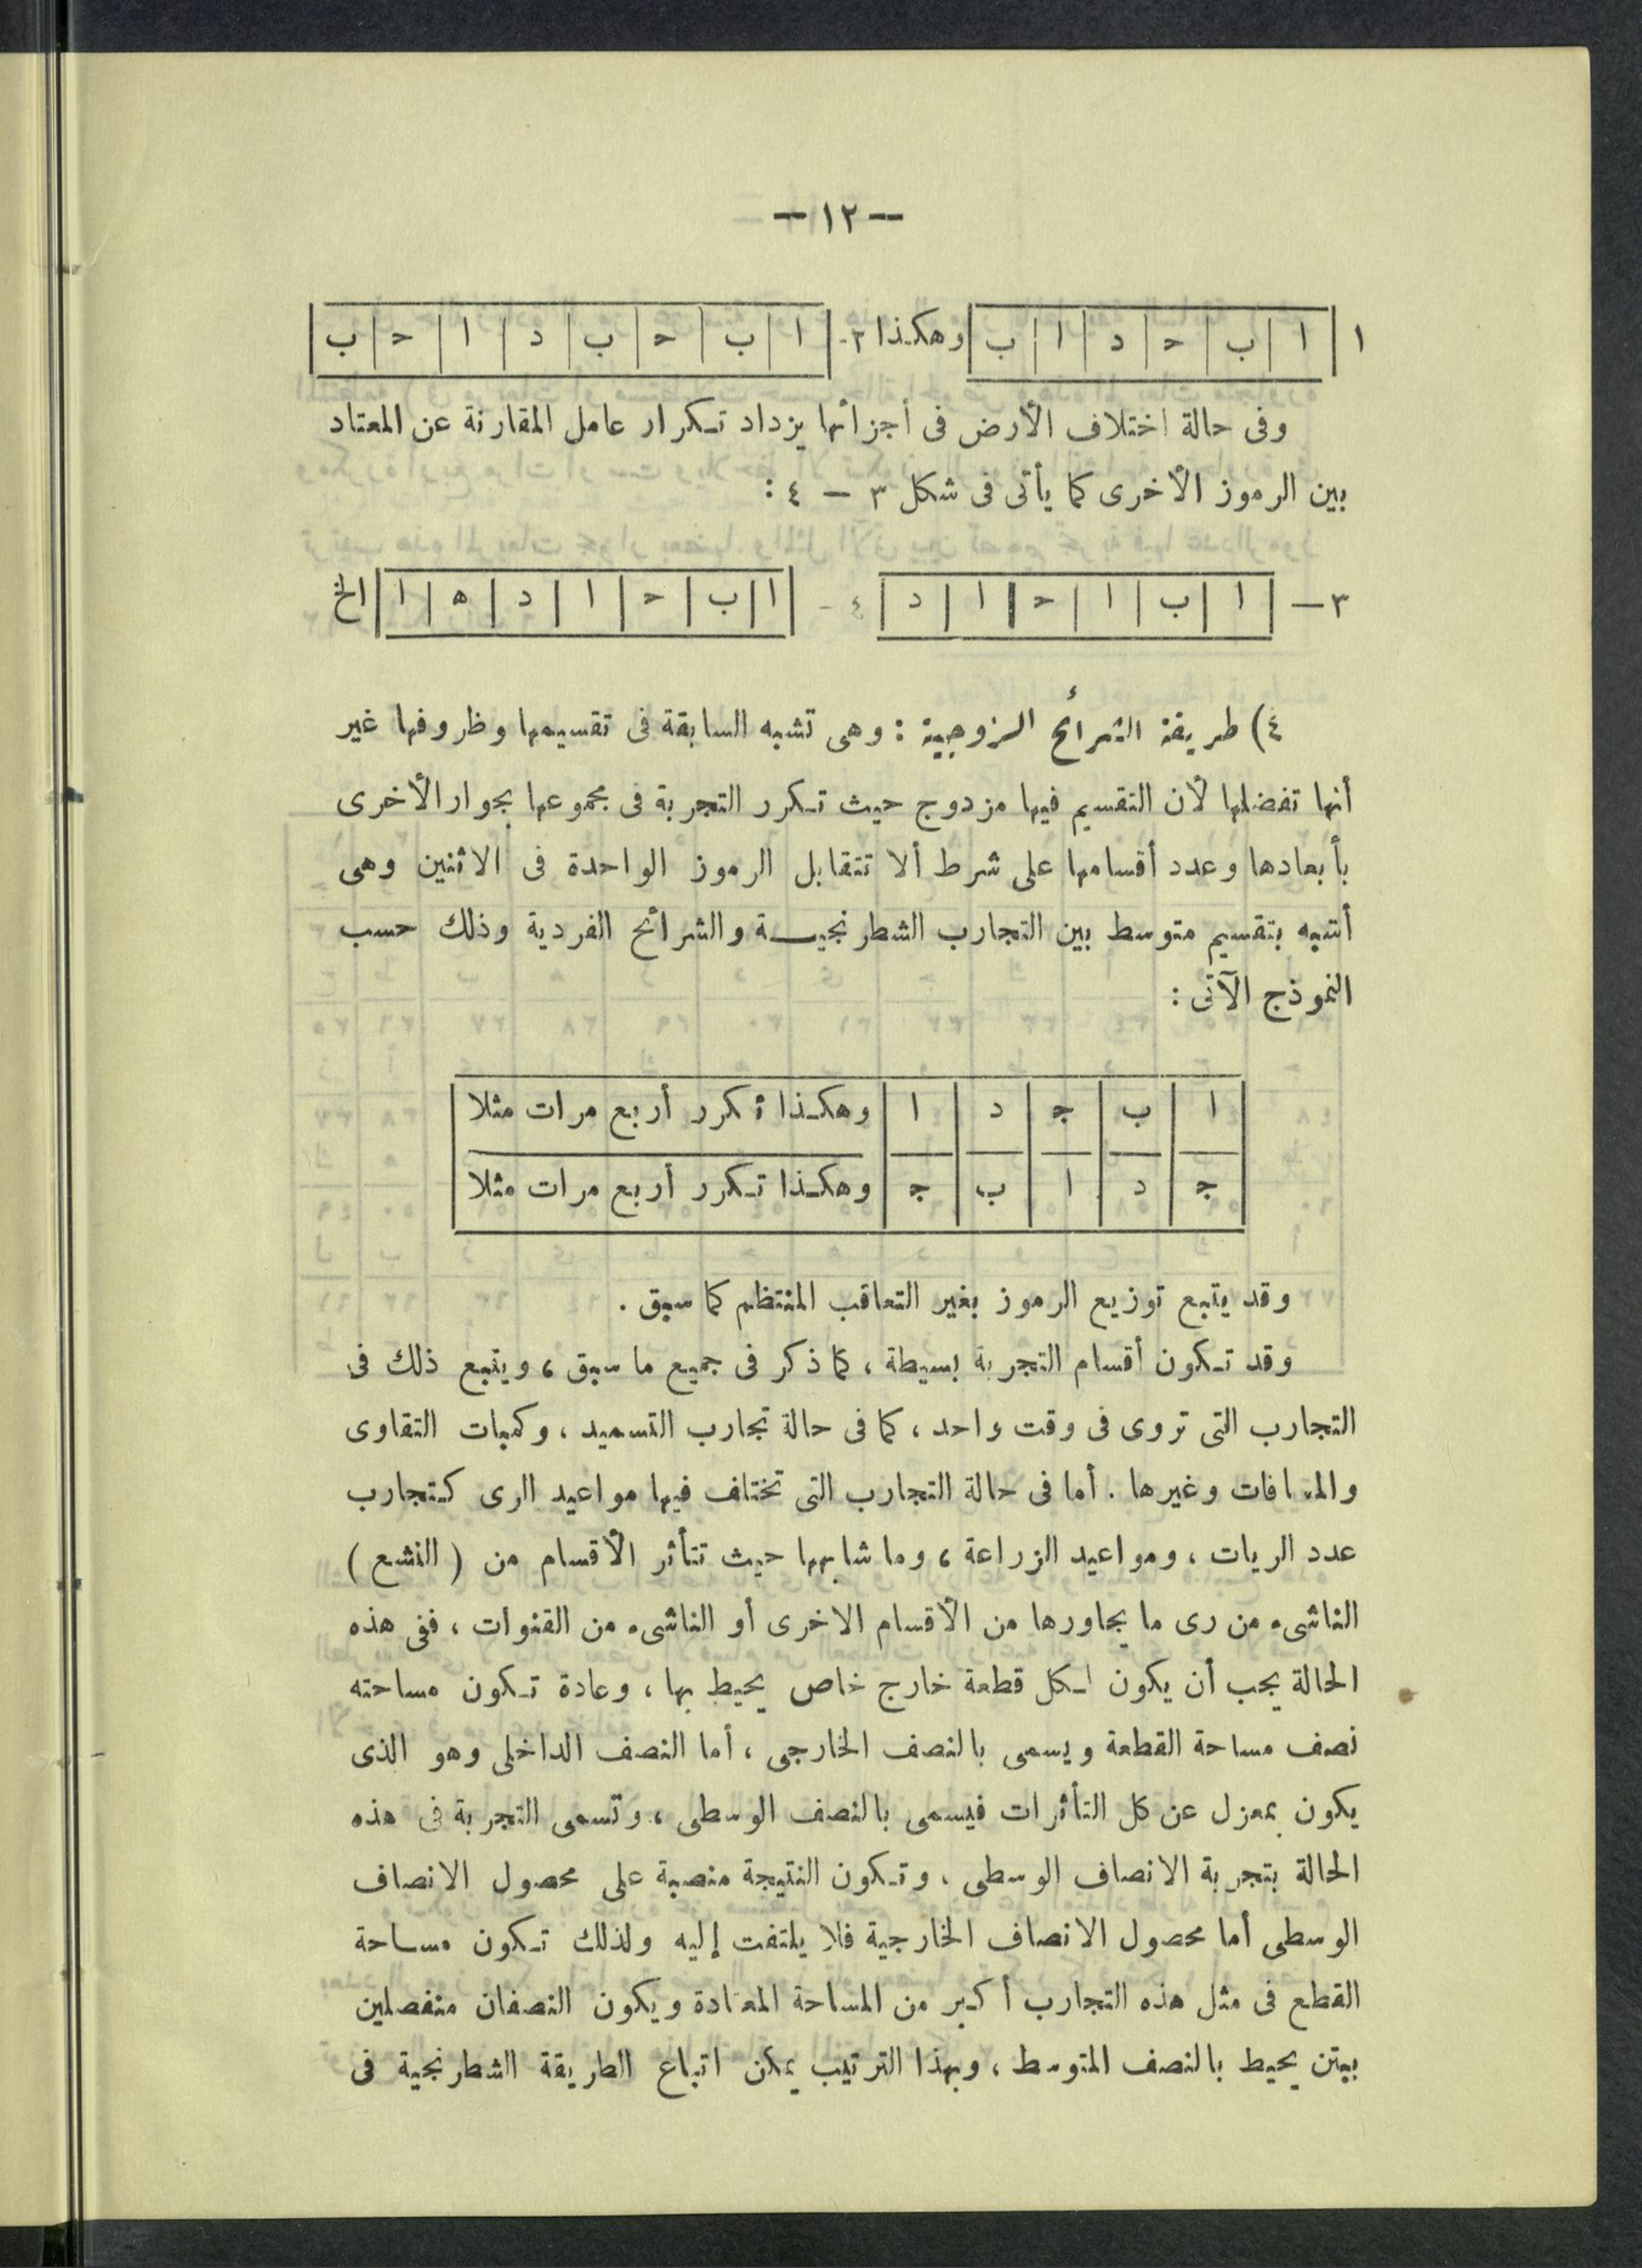 — ١٢ —
١ | ا | ب | ح | د | ا | ب | وهكذا ٢- | ا | ب | ح | ب | د | ا | ح | ب |
وفى حالة اختلاف الأرض فى أجزائها يزداد تكرار عامل المقارنة عن المعتاد
بين الرموز الأخرى كما يأتى فى شكل ٣ — ٤ :
٣ — | ا | ب | ا | ح | ا | د | ٤ - | ا | ب | ح | ا | د | ه | ا | الخ
٤) طريقة الشرائح الزوجية : وهى تشبه السابقة فى تقسيمها وظروفها غير
أنها تفضلها لأن التقسيم فيها مزدوج حيث تكرر التجربة فى مجموعها بجوار الأخرى
بأبعادها وعدد أقسامها على شرط ألا تتقابل الرموز الواحدة فى الاثنين وهى
أشبه بتقسيم متوسط بين التجارب الشطرنجية والشرائح الفردية وذلك حسب
النموذج الآتى :
ا | ب | ج | د | ا | وهكذا تكرر أربع مرات مثلا
ج | د | ا | ب | ج | وهكذا تكرر أربع مرات مثلا
وقد يتبع توزيع الرموز بغير التعاقب المنتظم كما سبق .
وقد تكون أقسام التجربة بسيطة ، كما ذكر فى جميع ما سبق ، ويتبع ذلك فى
التجارب التى تروى فى وقت واحد ، كما فى حالة تجارب التسميد ، وكميات التقاوى
والمسافات وغيرها . أما فى حالة التجارب التى تختلف فيها مواعيد الرى كتجارب
عدد الريات ، ومواعيد الزراعة ، وما شابهها حيث تتأثر الأقسام من ( النشع )
الناشىء من رى ما يجاورها من الأقسام الاخرى أو الناشىء من القنوات ، ففى هذه
الحالة يجب أن يكون لكل قطعة خارج خاص يحيط بها ، وعادة تكون مساحته
نصف مساحة القطعة ويسمى بالنصف الخارجى ، أما النصف الداخلى وهو الذى
يكون بمعزل عن كل التأثرات فيسمى بالنصف الوسطى ، وتسمى التجربة فى هذه
الحالة بتجربة الانصاف الوسطى ، وتكون النتيجة منصبة على محصول الانصاف
الوسطى أما محصول الانصاف الخارجية فلا يلتفت إليه ولذلك تكون مساحة
القطع فى مثل هذه التجارب أكبر من المساحة المعتادة ويكون النصفان منفصلين
ببتن يحيط بالنصف المتوسط ، وبهذا الترتيب يمكن اتباع الطريقة الشطرنجية فى